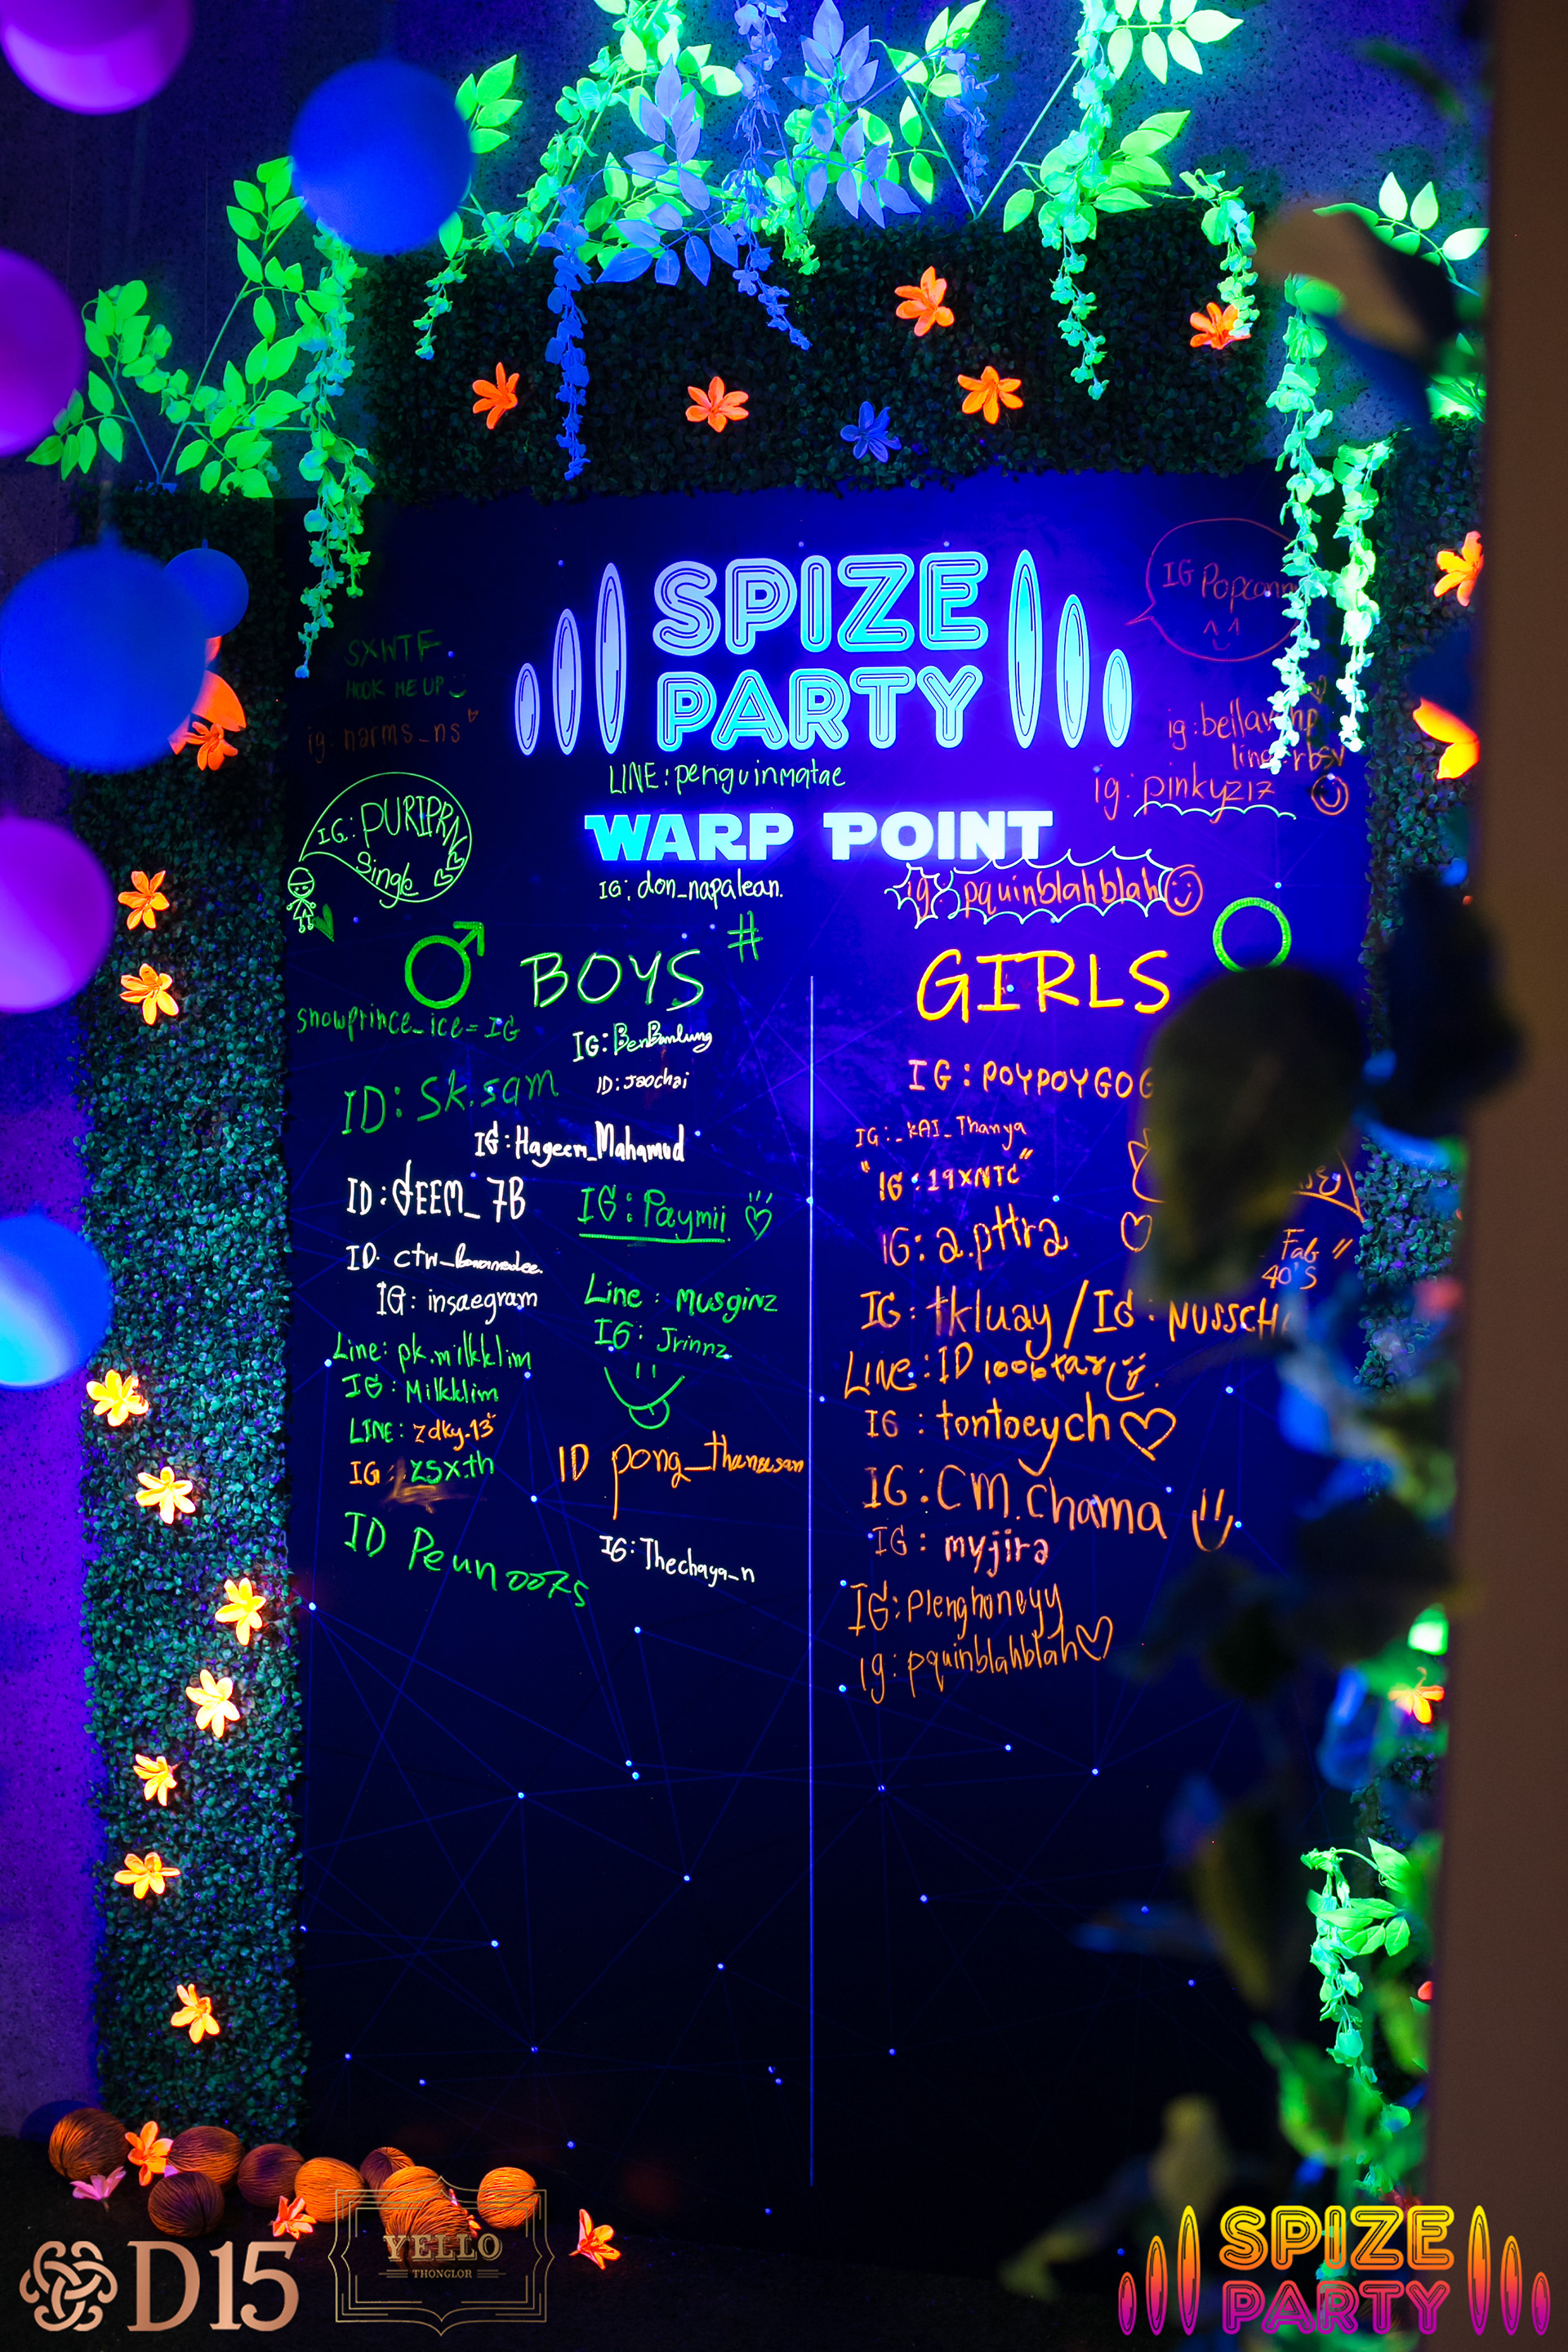 SPIZE
PARTY
IG Popcann
SXWTF
HOOK ME UP
ig: narms_ns
LINE: penguinmatae
ig: pinkyz17
WARP POINT
IG: PURIPRN
Single
IG: don_napalean.
ig: pquinblahblah
BOYS #
GIRLS
snowprince_ice = IG
IG: BenBanlung
ID: Jaochai
ID: Sk.sam
IG: Hageem_Mahamud
ID: dEEM_7B
IG: Paymii
ID: ctw_
IG: insaegram
Line: Musginz
IG: Jrinnz
Line: pk.milkklim
IG: Milkklim
LINE: zdky.13
IG: zsx.th
ID pong_thanasan
ID Peun0075
IG: Thechaya_n
IG: POYPOYGO
IG: _KAI_Thanya
"IG: 19XNTC"
IG: a.pttra
Fab "
40'S
IG: tkluay / IG: NUSSCH
LINE: ID 1006tar
IG: tontoeych
IG: cm.chama
IG: myjira
IG: plenghoneyy
ig: pquinblahblah
D15
YELLO
THONGLOR
SPIZE
PARTY